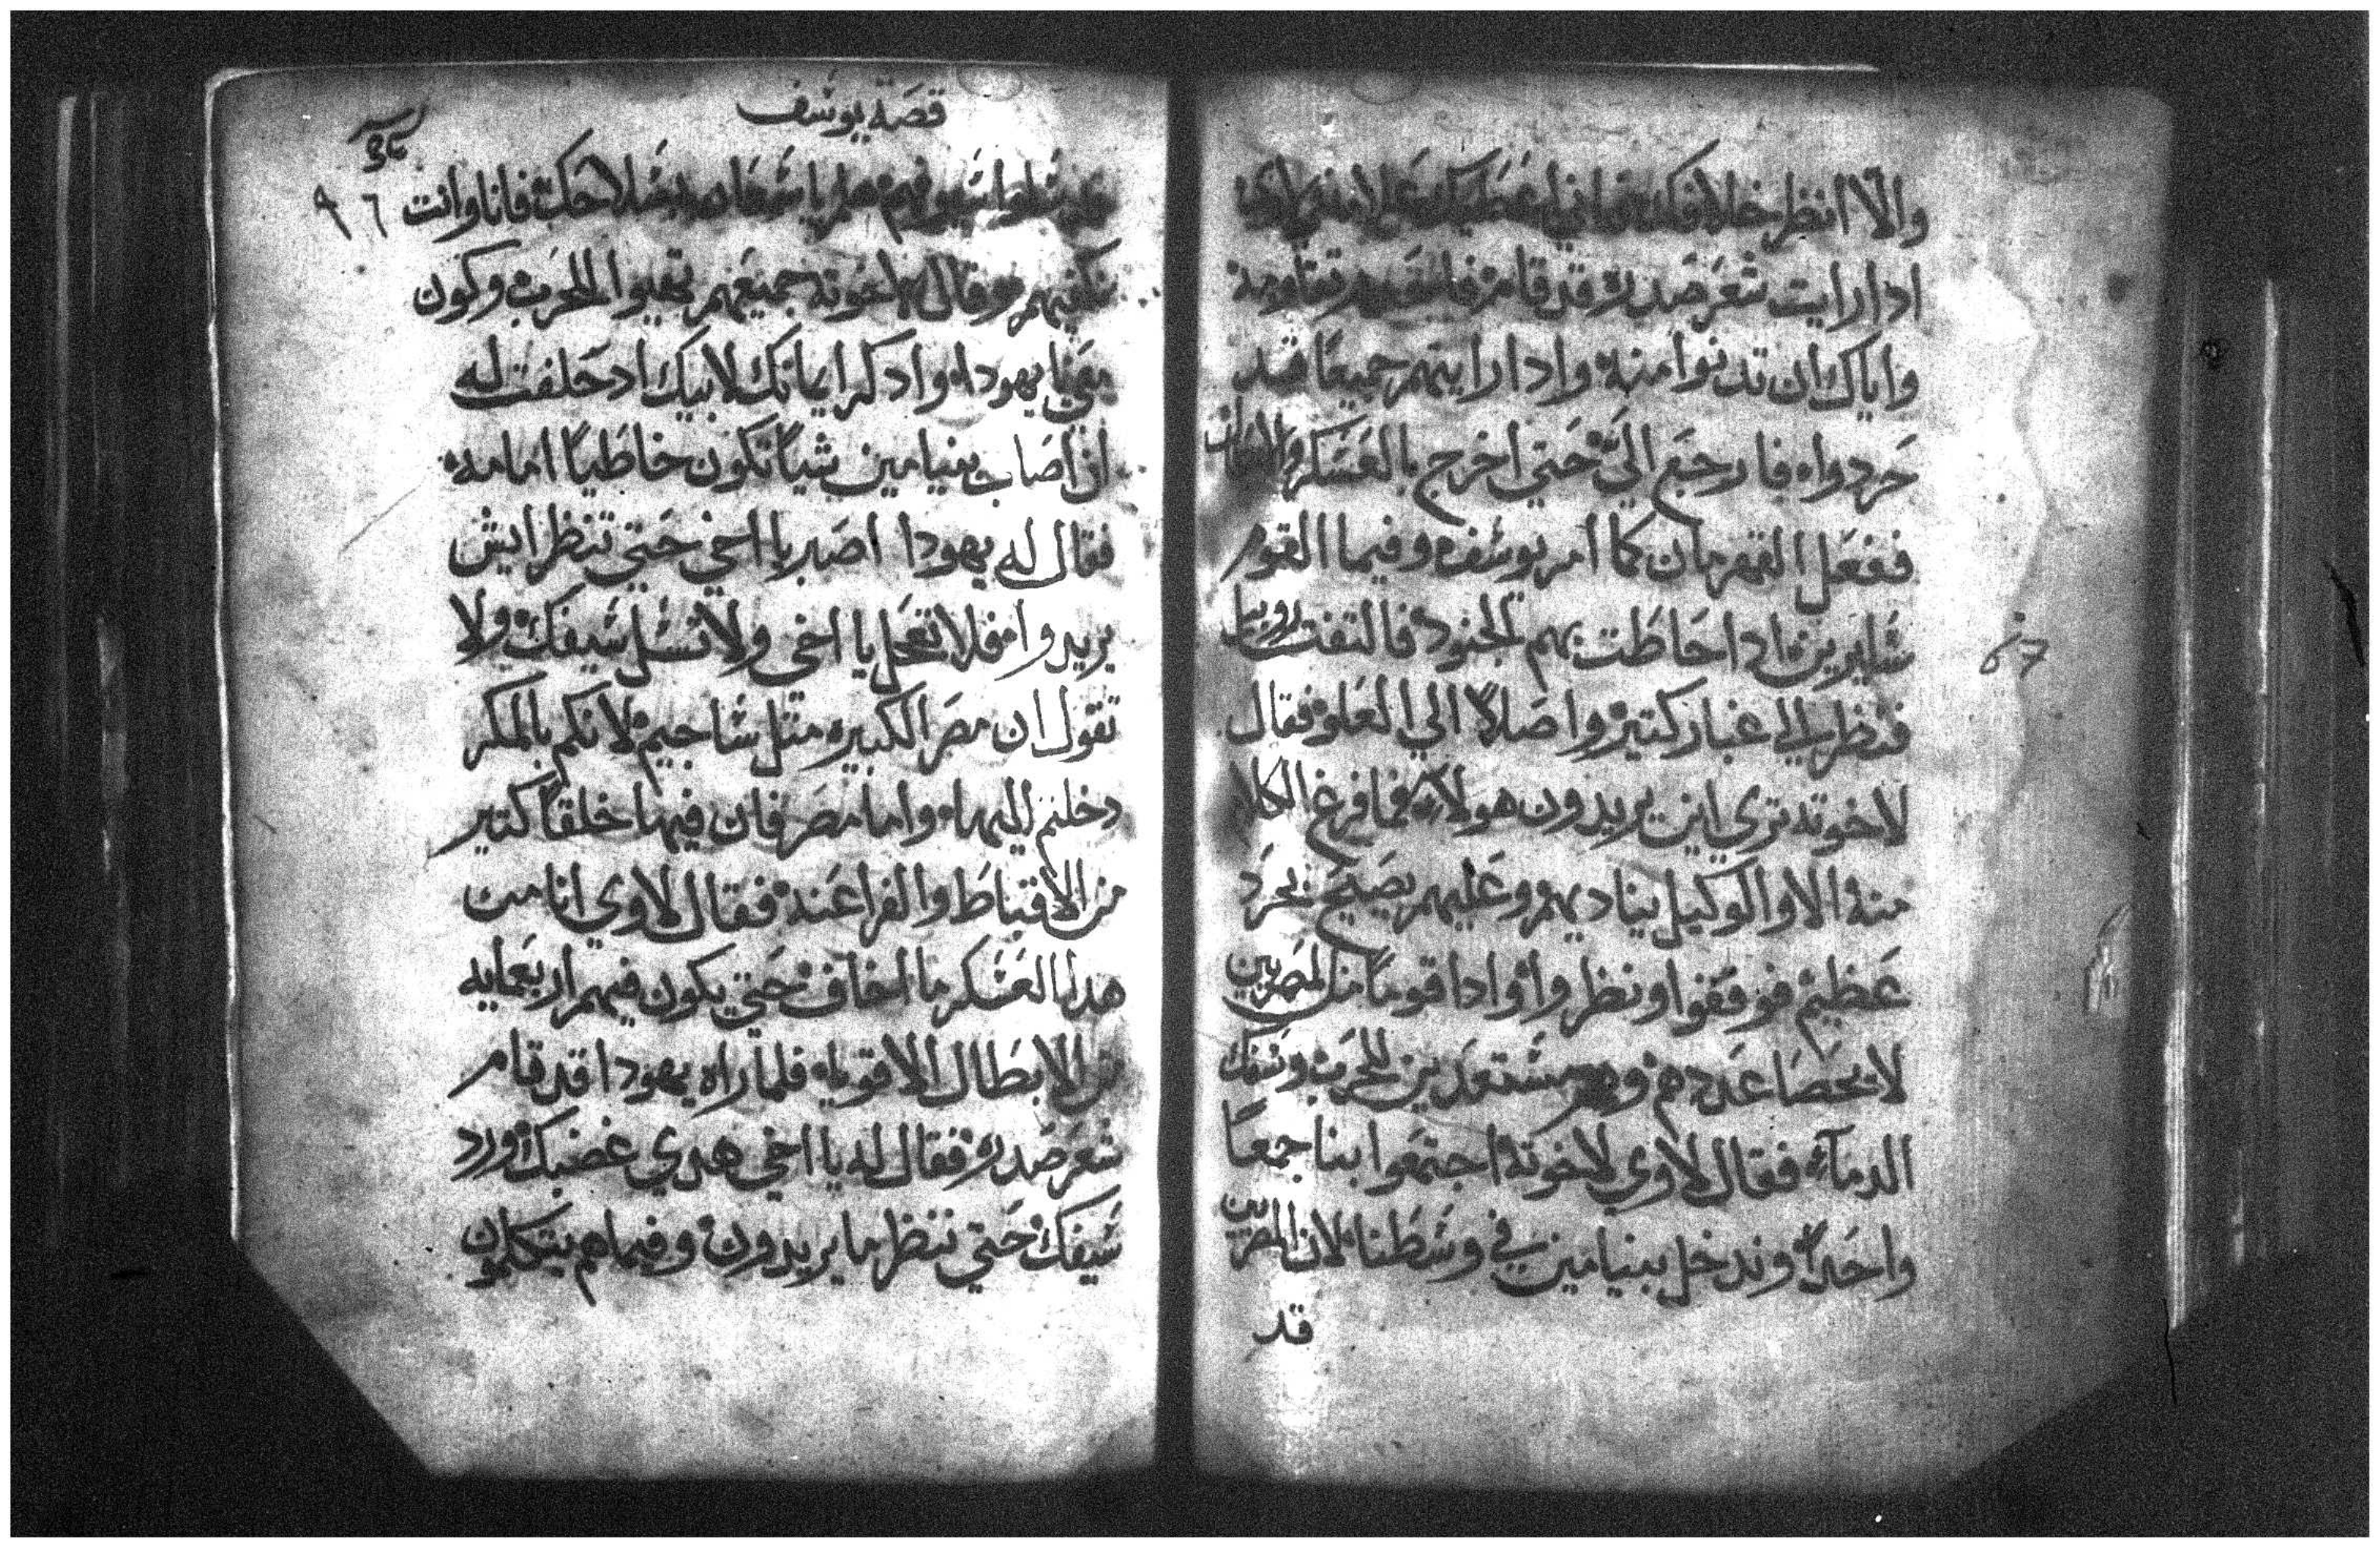 والا انظر خلافك فاني
ادا رايت شعر صدره قد قام فا تقاومه
واياك ان تدنوا منه وادا رايتهم جميعًا قد
حردوا فارجع الىّ حتي اخرج بالعسكر
ففعل القهرمان كما امر يوسف وفيما القوم
سايرين ادا احاطت بهم الجنود فالتفت روبيل
فنظر الي غبار كتير واصلاً الي العلو فقال
لاخوته تري اين يريدون هولاء فما فرغ الكلام
منه الا والوكيل يناديهم وعليهم يصيح بحرد
عظيم فوقفوا ونظروا وادا قومًا من المصريين
لا يحصا عددهم وهم مستعدين للحرب وسفك
الدماء فقال لاوي لاخوته اجتمعوا بنا جمعًا
واحدًا وندخل بنيامين في وسطنا لان المصريين
قد
67
قصة يوسف
٩٦
يا شمعان فانا وانت
نكفيهم وقال لاخوته جميعهم للحرب وكون
معي يا يهودا وادكر ايمانك لابيك اد حلفت له
ان اصاب بنيامين شيًا تكون خاطيًا امامه
فقال له يهودا اصبر يا اخي حتي تنظر ايش
يريدوا فلا تعجل يا اخي ولا تسل سيفك ولا
تقول ان مصر الكبيره متل ساجيم لانكم بالمكر
دخلتم اليها واما مصر فان فيها خلقًا كتير
من الاقباط والفراعنه فقال لاوي انا من
هدا العسكر ما اخاف حتي يكون فيهم اربعمايه
من الابطال الاقويا فلما راه يهودا قد قام
شعر صدره فقال له يا اخي هدي غضبك ورد
سيفك حتي ننظر ما يريدون وفيما هم يتكلمون